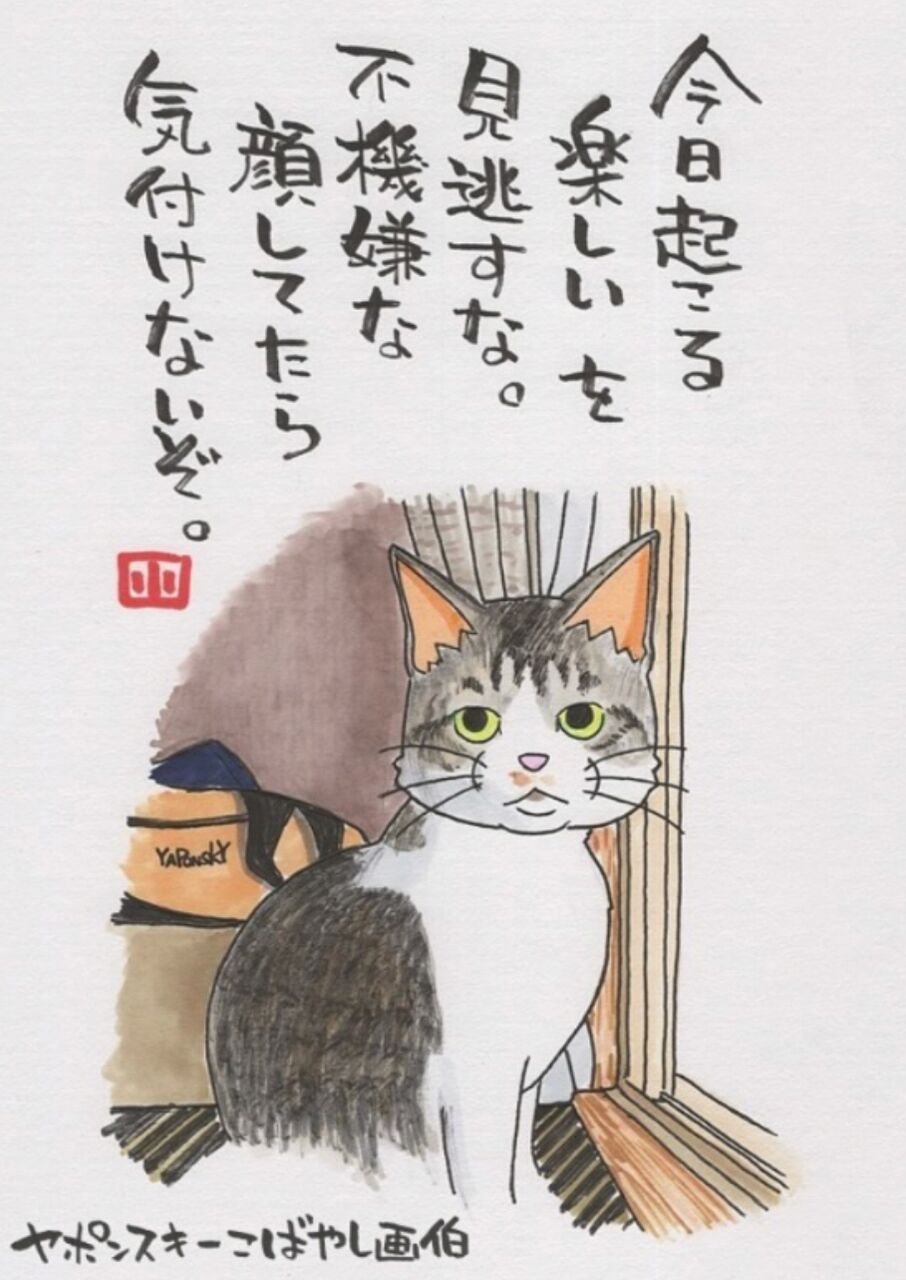 今日起こる
楽しいを
見逃すな。
不機嫌な
顔してたら
気付けないぞ。
YAPONSKY
ヤポンスキーこばやし画伯